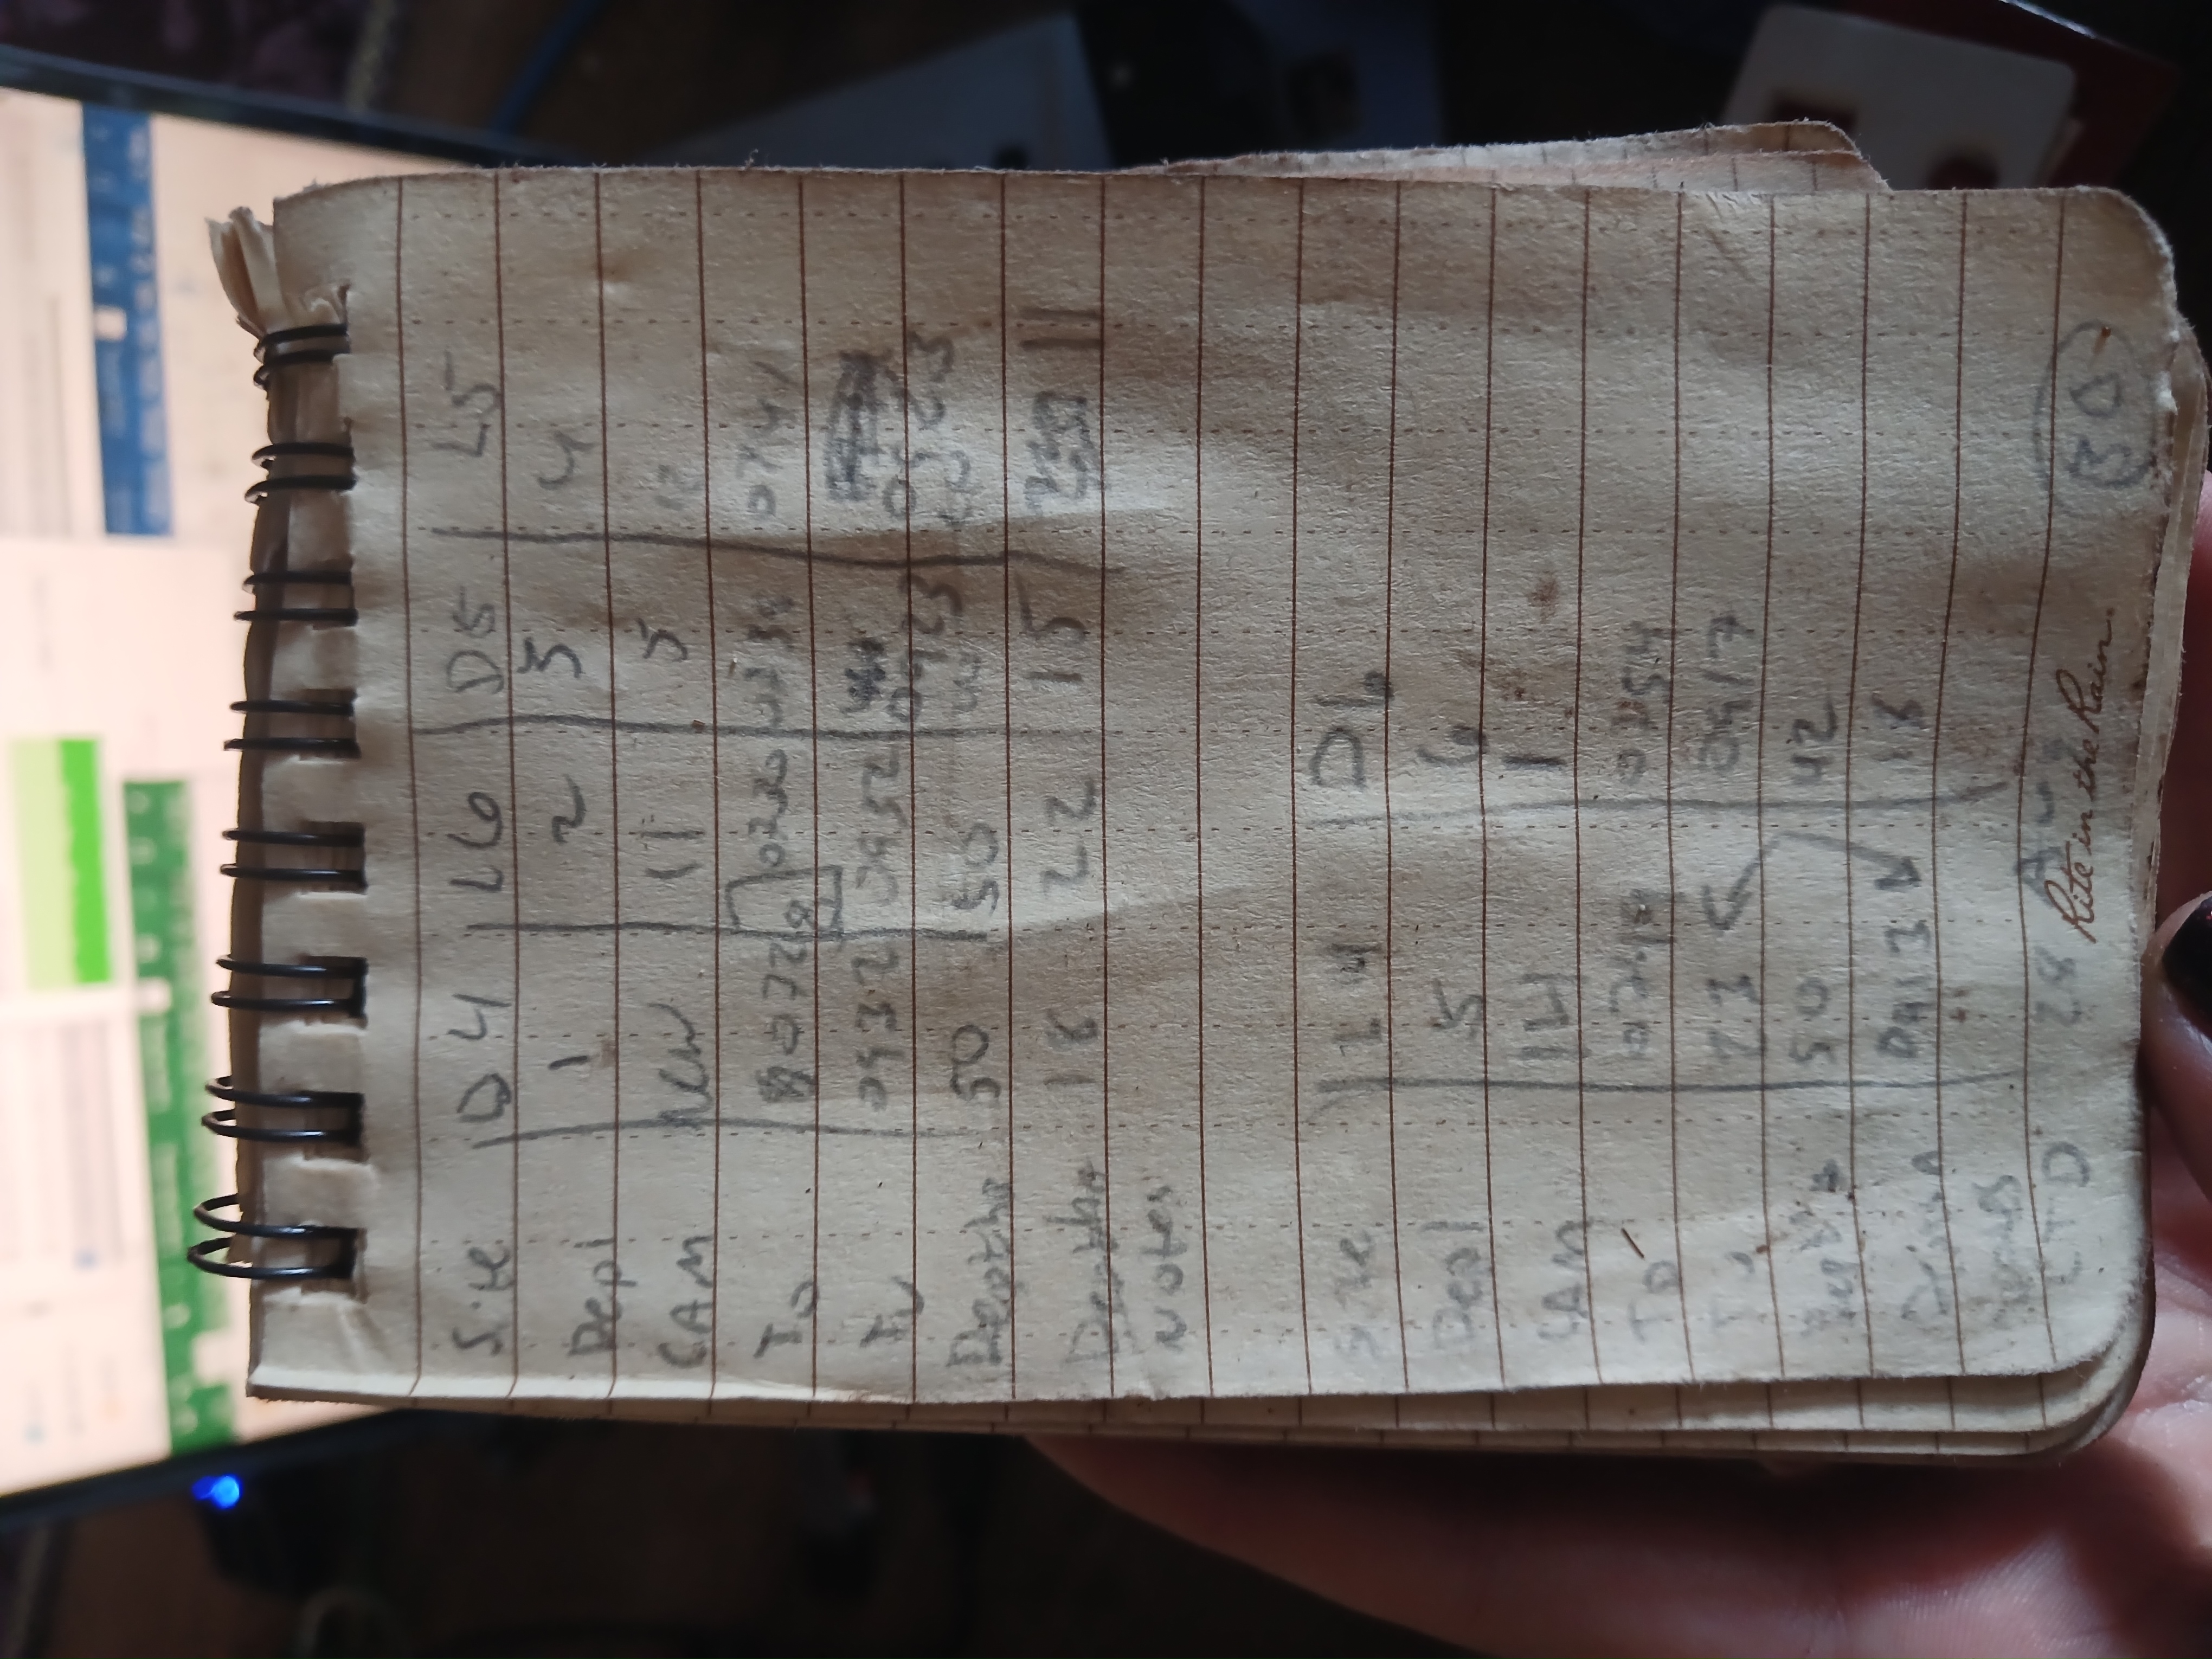 Site D4 L6 D5 L5
Depl 1 2 3 4
CAM New 11 5 12
To 0728 0730 0738 0741
0932 0952 0925 0923
Depths 50 50 40 50
18 22 15 11
Notes
Site L4 D6
Depl 5 6
CAM 14 1
To 0754
23 0917
Depths 50 42
0913 18
Notes
CTD 28 Aug 30
Rite in the Rain.